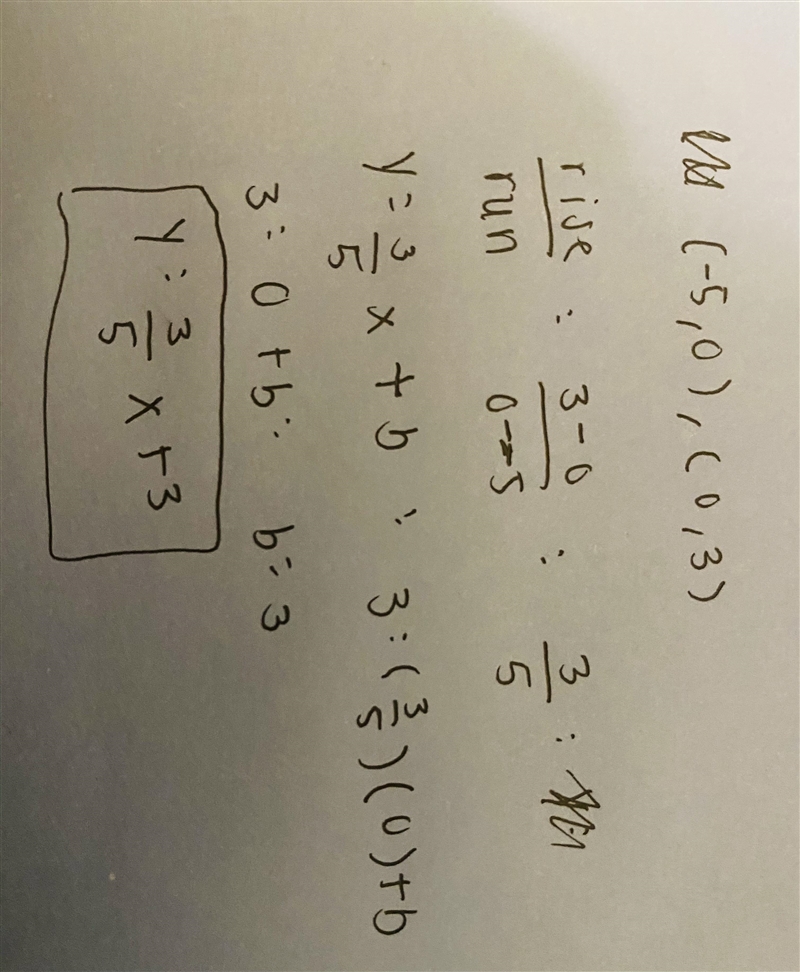 (-5,0), (0,3)
rise/run = 3-0/0--5 = 3/5 =
y = 3/5 x + b = 3 = (3/5)(0)+b
3 = 0 + b = b = 3
y = 3/5 x + 3